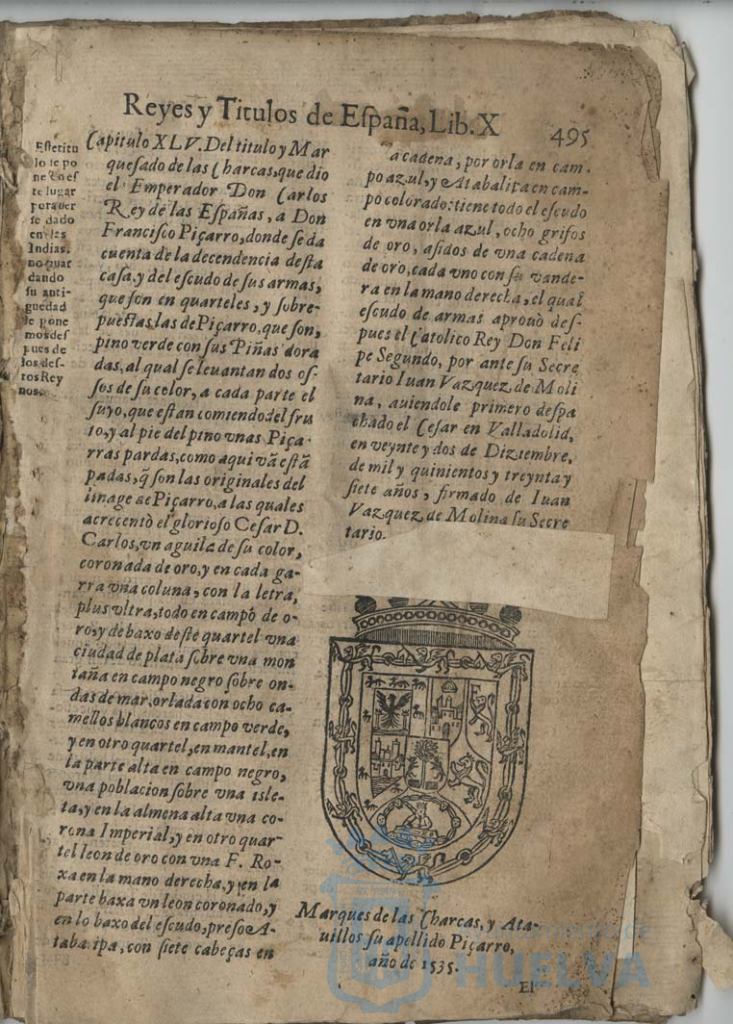 Reyes y Titulos de España, Lib. X
495
Este titu
lo se po
ne en es
te lugar
por aver
se dado
en las
Indias,
no guar
dando
su anti-
guedad
se pone
mos des
pues de
los des-
tros Rey
nos.
Capitulo XLV. Del titulo y Mar
quesado de las Charcas, que dio
el Emperador Don Carlos
Rey de las Españas, a Don
Francisco Piçarro, donde se da
cuenta de la decendencia desta
casa, y del escudo de sus armas,
que son en quarteles, y sobre-
puestas las de Piçarro, que son,
pino verde con sus Piñas dora
das, al qual se leuantan dos os-
sos de su color, a cada parte el
suyo, que estan comiendo del fru
to, y al pie del pino vnas Piça-
rras pardas, como aqui vã estã
padas, q̃ son las originales del
linage de Piçarro, a las quales
acrecentò el glorioso Cesar D.
Carlos, vn aguila de su color,
coronada de oro, y en cada ga-
rra vna coluna, con la letra,
plus vltra, todo en campo de o-
ro, y debaxo deste quartel vna
ciudad de plata sobre vna mon
taña en campo negro sobre on-
das de mar, orlada con ocho ca-
mellos blancos en campo verde,
y en otro quartel, en mantel, en
la parte alta en campo negro,
vna poblacion sobre vna isle-
ta, y en la almena alta vna co-
rona Imperial, y en otro quar-
tel leon de oro con vna F. Ro-
xa en la mano derecha, y en la
parte baxa vn leon coronado, y
en lo baxo del escudo, preso A-
tabalipa, con siete cabeças en
la cadena, por orla en cam-
po azul, y Atabalipa en cam-
po colorado: tiene todo el escudo
en vna orla azul, ocho grifos
de oro, asidos de vna cadena
de oro, cada vno con su vande-
ra en la mano derecha, el qual
escudo de armas aprouò des-
pues el Catolico Rey Don Feli
pe Segundo, por ante su Secre
tario Iuan Vazquez de Moli
na, auiendole primero despa
chado el Cesar en Valladolid,
en veynte y dos de Diziembre,
de mil y quinientos y treynta y
siete años, firmado de Iuan
Vazquez de Molina su Secre
tario.
Marques de las Charcas, y Ata-
uillos su apellido Piçarro,
año de 1535.
El
HUELVA